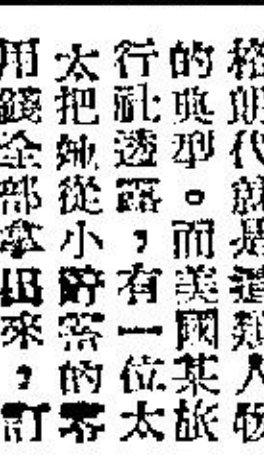 格朗代就是這類人物
的典型。而美國某旅
行社透露，有一位太
太把她從小貯蓄的零
用錢全部拿出來，訂